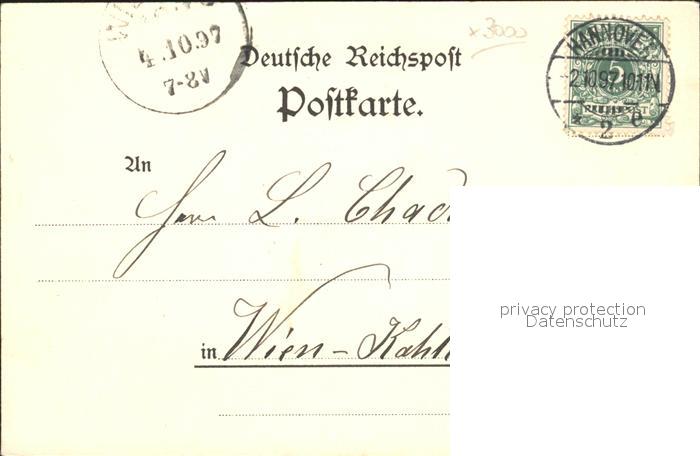 4.10.97
7-8V
3000
Deutsche Reichspost
Postkarte.
HANNOVER
5
2.10.97.10-11N
* 2 e
An
Herr L. Chad
in Wien-Kahl
privacy protection
Datenschutz